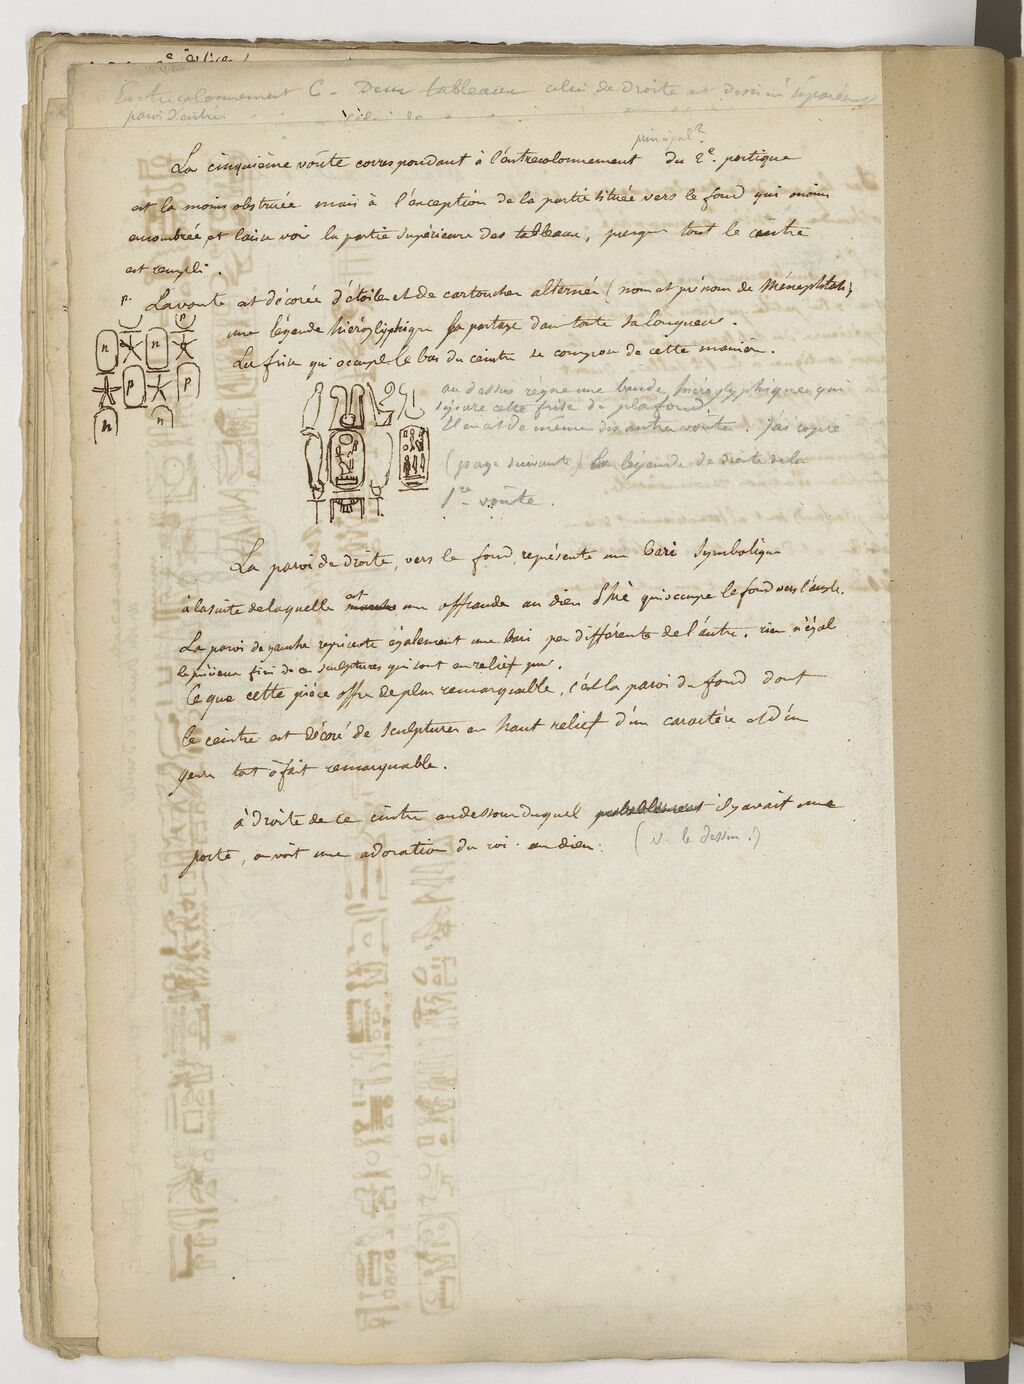 Entrecolonnement C. Deux tableaux celui de droite est dessiné séparément
paroi d'entrée
principal?
La cinquième voûte correspondant à l'entrecolonnement du 2e. portique
est la moins obstruée mais à l'exception de la partie située vers le fond qui moins
encombrée et laisse voir la partie supérieure des tableaux, presque tout le ceintre
est rempli.
La voute est décorée d'étoiles et de cartouches alternés (nom et prénom de Ménephtah);
une légende hiéroglyphique la partage dans toute sa longueur.
La frise qui occupe le bas du ceintre se compose de cette manière.
p. p
n n
p p
n n
au dessus règne une bande hiéroglyphique qui
sépare cette frise du plafond.
Il en est de même des autres voûtes. j'ai copié
(page suivante) la légende de droite de la
1re voûte.
La paroi de droite, vers le fond, représente un bari symbolique
à la suite de laquelle est une offrande au dieu Phrè qui occupe le fond vers l'angle.
La paroi de gauche représente également une bari peu différente de l'autre. rien n'égal
le précieux fini de ces sculptures qui sont en relief pur.
Ce que cette pièce offre de plus remarquable, c'est la paroi du fond dont
le ceintre est décoré de sculptures en haut relief d'un caractère et d'un
genre tout à fait remarquable.
à droite de ce ceintre au dessous duquel probablement il y avait une
porte, on voit une adoration du roi au dieu. (v. le dessin.)